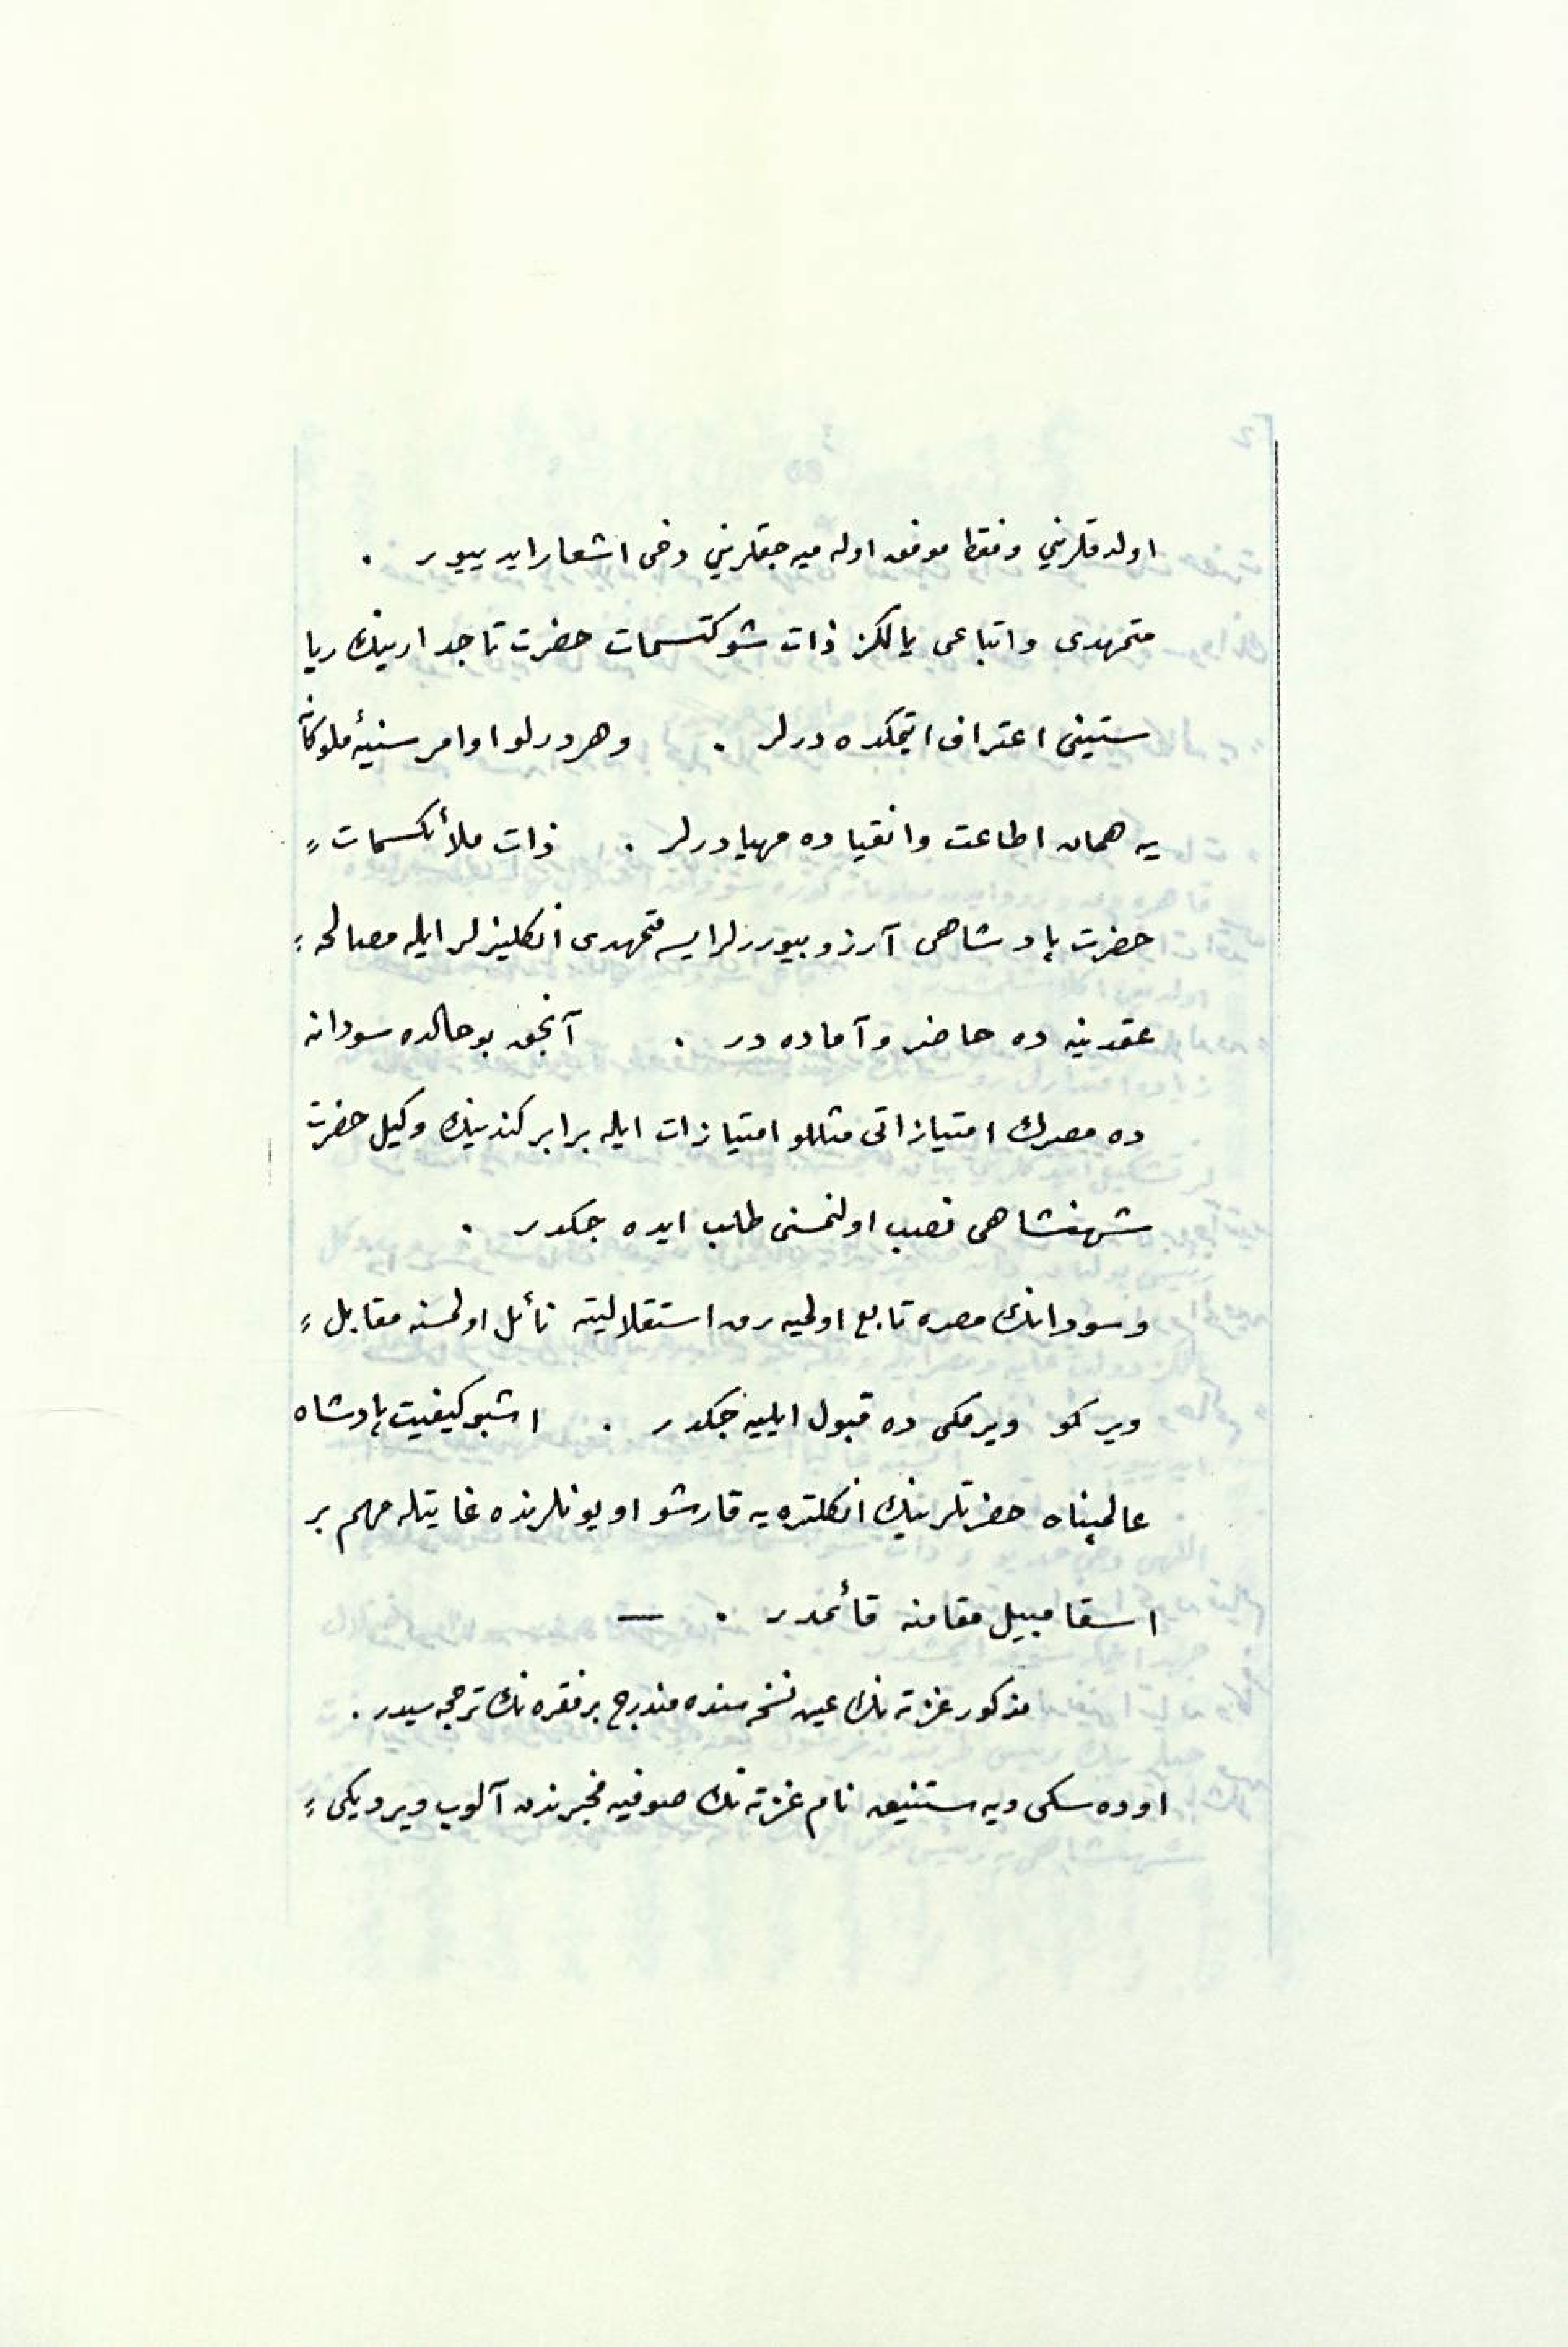 اولدقلرینی و فقط موفق اوله میه جقلرینی دخی اشعار ایدییور .
متمهدی و اتباعی یالکز ذات شوکتسمات حضرت تاجدارینك ریا
ستینی اعتراف ایتمکده درلر . و هر درلو اوامر سنیهٔ ملوکانه
یه همان اطاعت و انقیاده مهیادرلر . ذات ملائکسمات
حضرت پادشاهی آرزو بیوررلر ایسه متمهدی انکلیزلر ایله مصالحه
عقدینه ده حاضر و آماده در . آنجق بو حالده سودانه
ده مصرك امتیازاتی مثللو امتیازات ایله برابر کندینك وکیل حضرت
شهنشاهی نصب اولنمسنی طلب ایده جکدر .
و سودانك مصره تابع اولمیه رق استقلالیته نائل اولمسنه مقابل
ویرکو ویرمکی ده قبول ایلیه جکدر . اشبو کیفیت پادشاه
عالمپناه حضرتلرینك انکلتره یه قارشو اویونلرنده غایتله مهم بر
اسقامبیل مقامنه قائمدر . —
مذکور غزته نك عین نسخه سنده مندرج بر فقره نك ترجمه سیدر .
اوده سکی ویه ستنیق نام غزته نك صوفیه مخبرندن آلوب ویردیکی